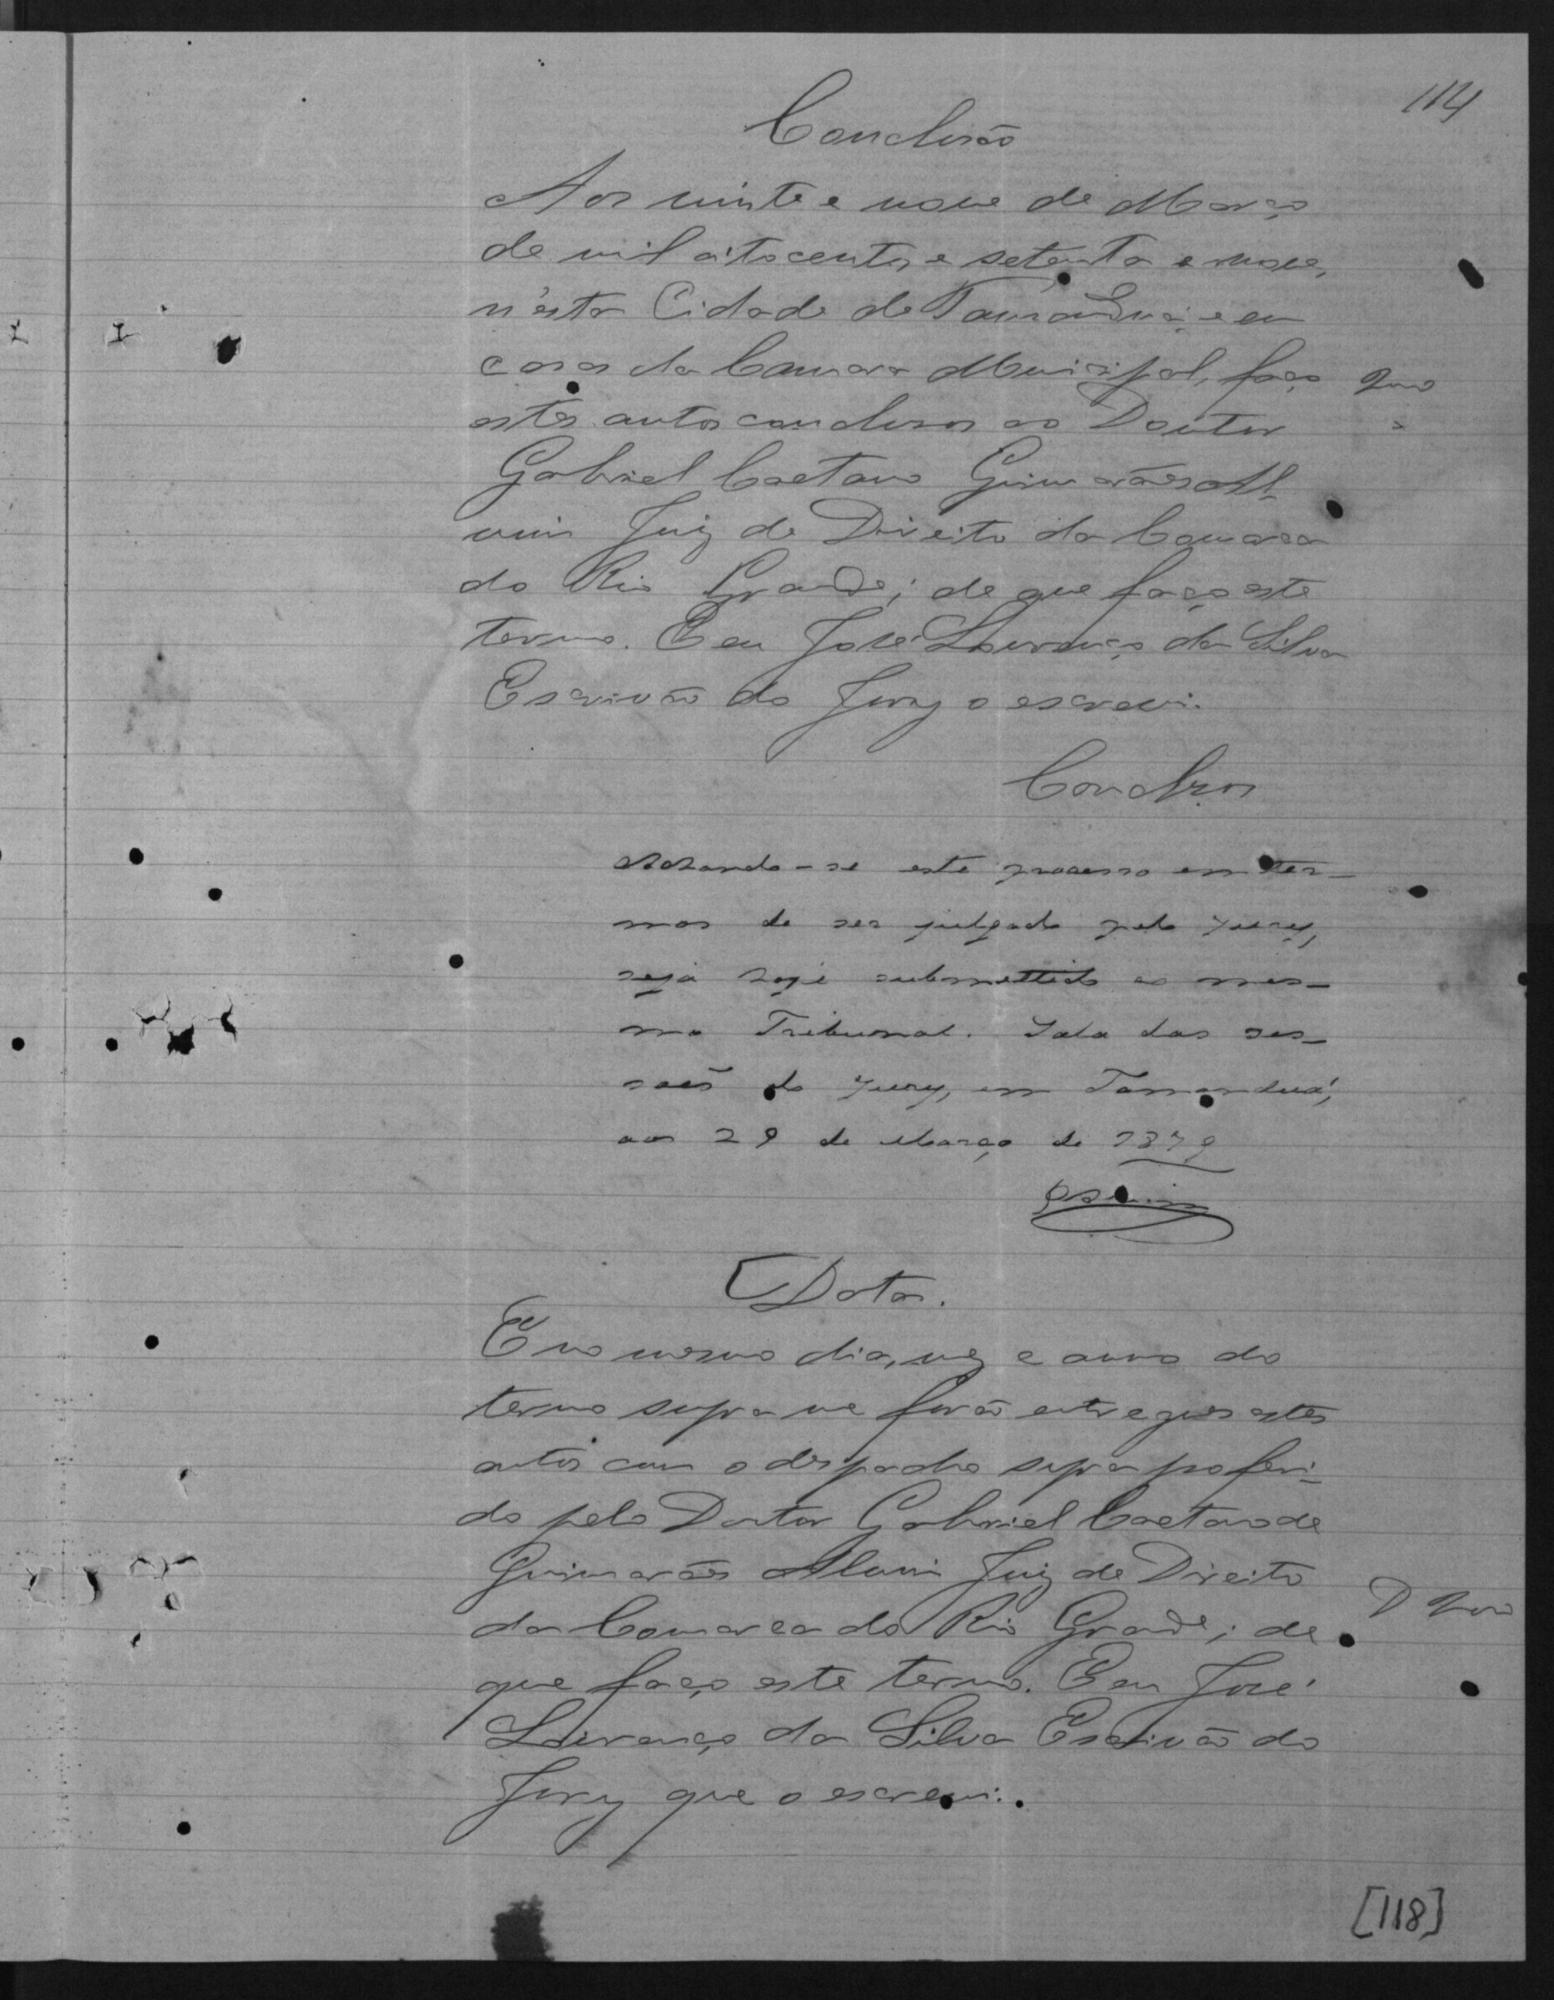 114
Conclusão
Aos vinte e nove de Março
de mil oitocentos e setenta e nove,
n'esta Cidade de Tamanduá, e em
casa da Camara Municipal, faço
estes autos conclusos ao Doutor
Gabriel Caetano Guimarães Al-
vim Juiz de Direito da Comarca
do Rio Grande; de que faço este
termo. E eu José Lourenço da Silva
Escrivão do Jury o escrevi.
Conclusos
Achando-se este processo em ter-
mos de ser julgado pelo Jury,
seja hoje submettido ao mes-
mo Tribunal. Sala das ses-
sões do Jury, em Tamanduá,
aos 29 de Março de 1879
Data.
E no mesmo dia, mez e anno do
termo supra me forão entregues estes
autos com o despacho supra proferi-
do pelo Doutor Gabriel Caetano de
Guimarães Alvim Juiz de Direito
da Comarca do Rio Grande; de
que faço este termo. E eu José
Lourenço da Silva Escrivão do
Jury que o escrevi.
[118]